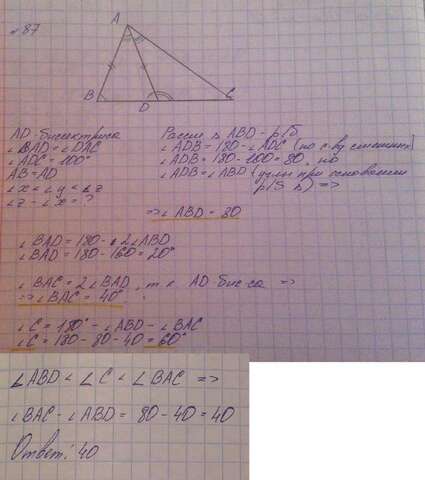 №87
A
B
D
C
AD - биссектриса
∠BAD = ∠DAC
∠ADC = 100°
AB = AD
∠x < ∠y < ∠z
∠z - ∠x = ?
Рассм. △ ABD - р/б
∠ADB = 180 - ∠ADC (по св-ву смежных)
∠ADB = 180 - 100 = 80, но
∠ADB = ∠ABD (углы при основании
р/б △) =>
=> ∠ABD = 80
∠BAD = 180 - 2∠ABD
∠BAD = 180 - 160 = 20°
∠BAC = 2∠BAD, т.к. AD - бис-са =>
=> ∠BAC = 40°
∠C = 180° - ∠ABD - ∠BAC
∠C = 180 - 80 - 40 = 60°
∠ABD < ∠C < ∠BAC =>
∠BAC - ∠ABD = 80 - 40 = 40
Ответ: 40